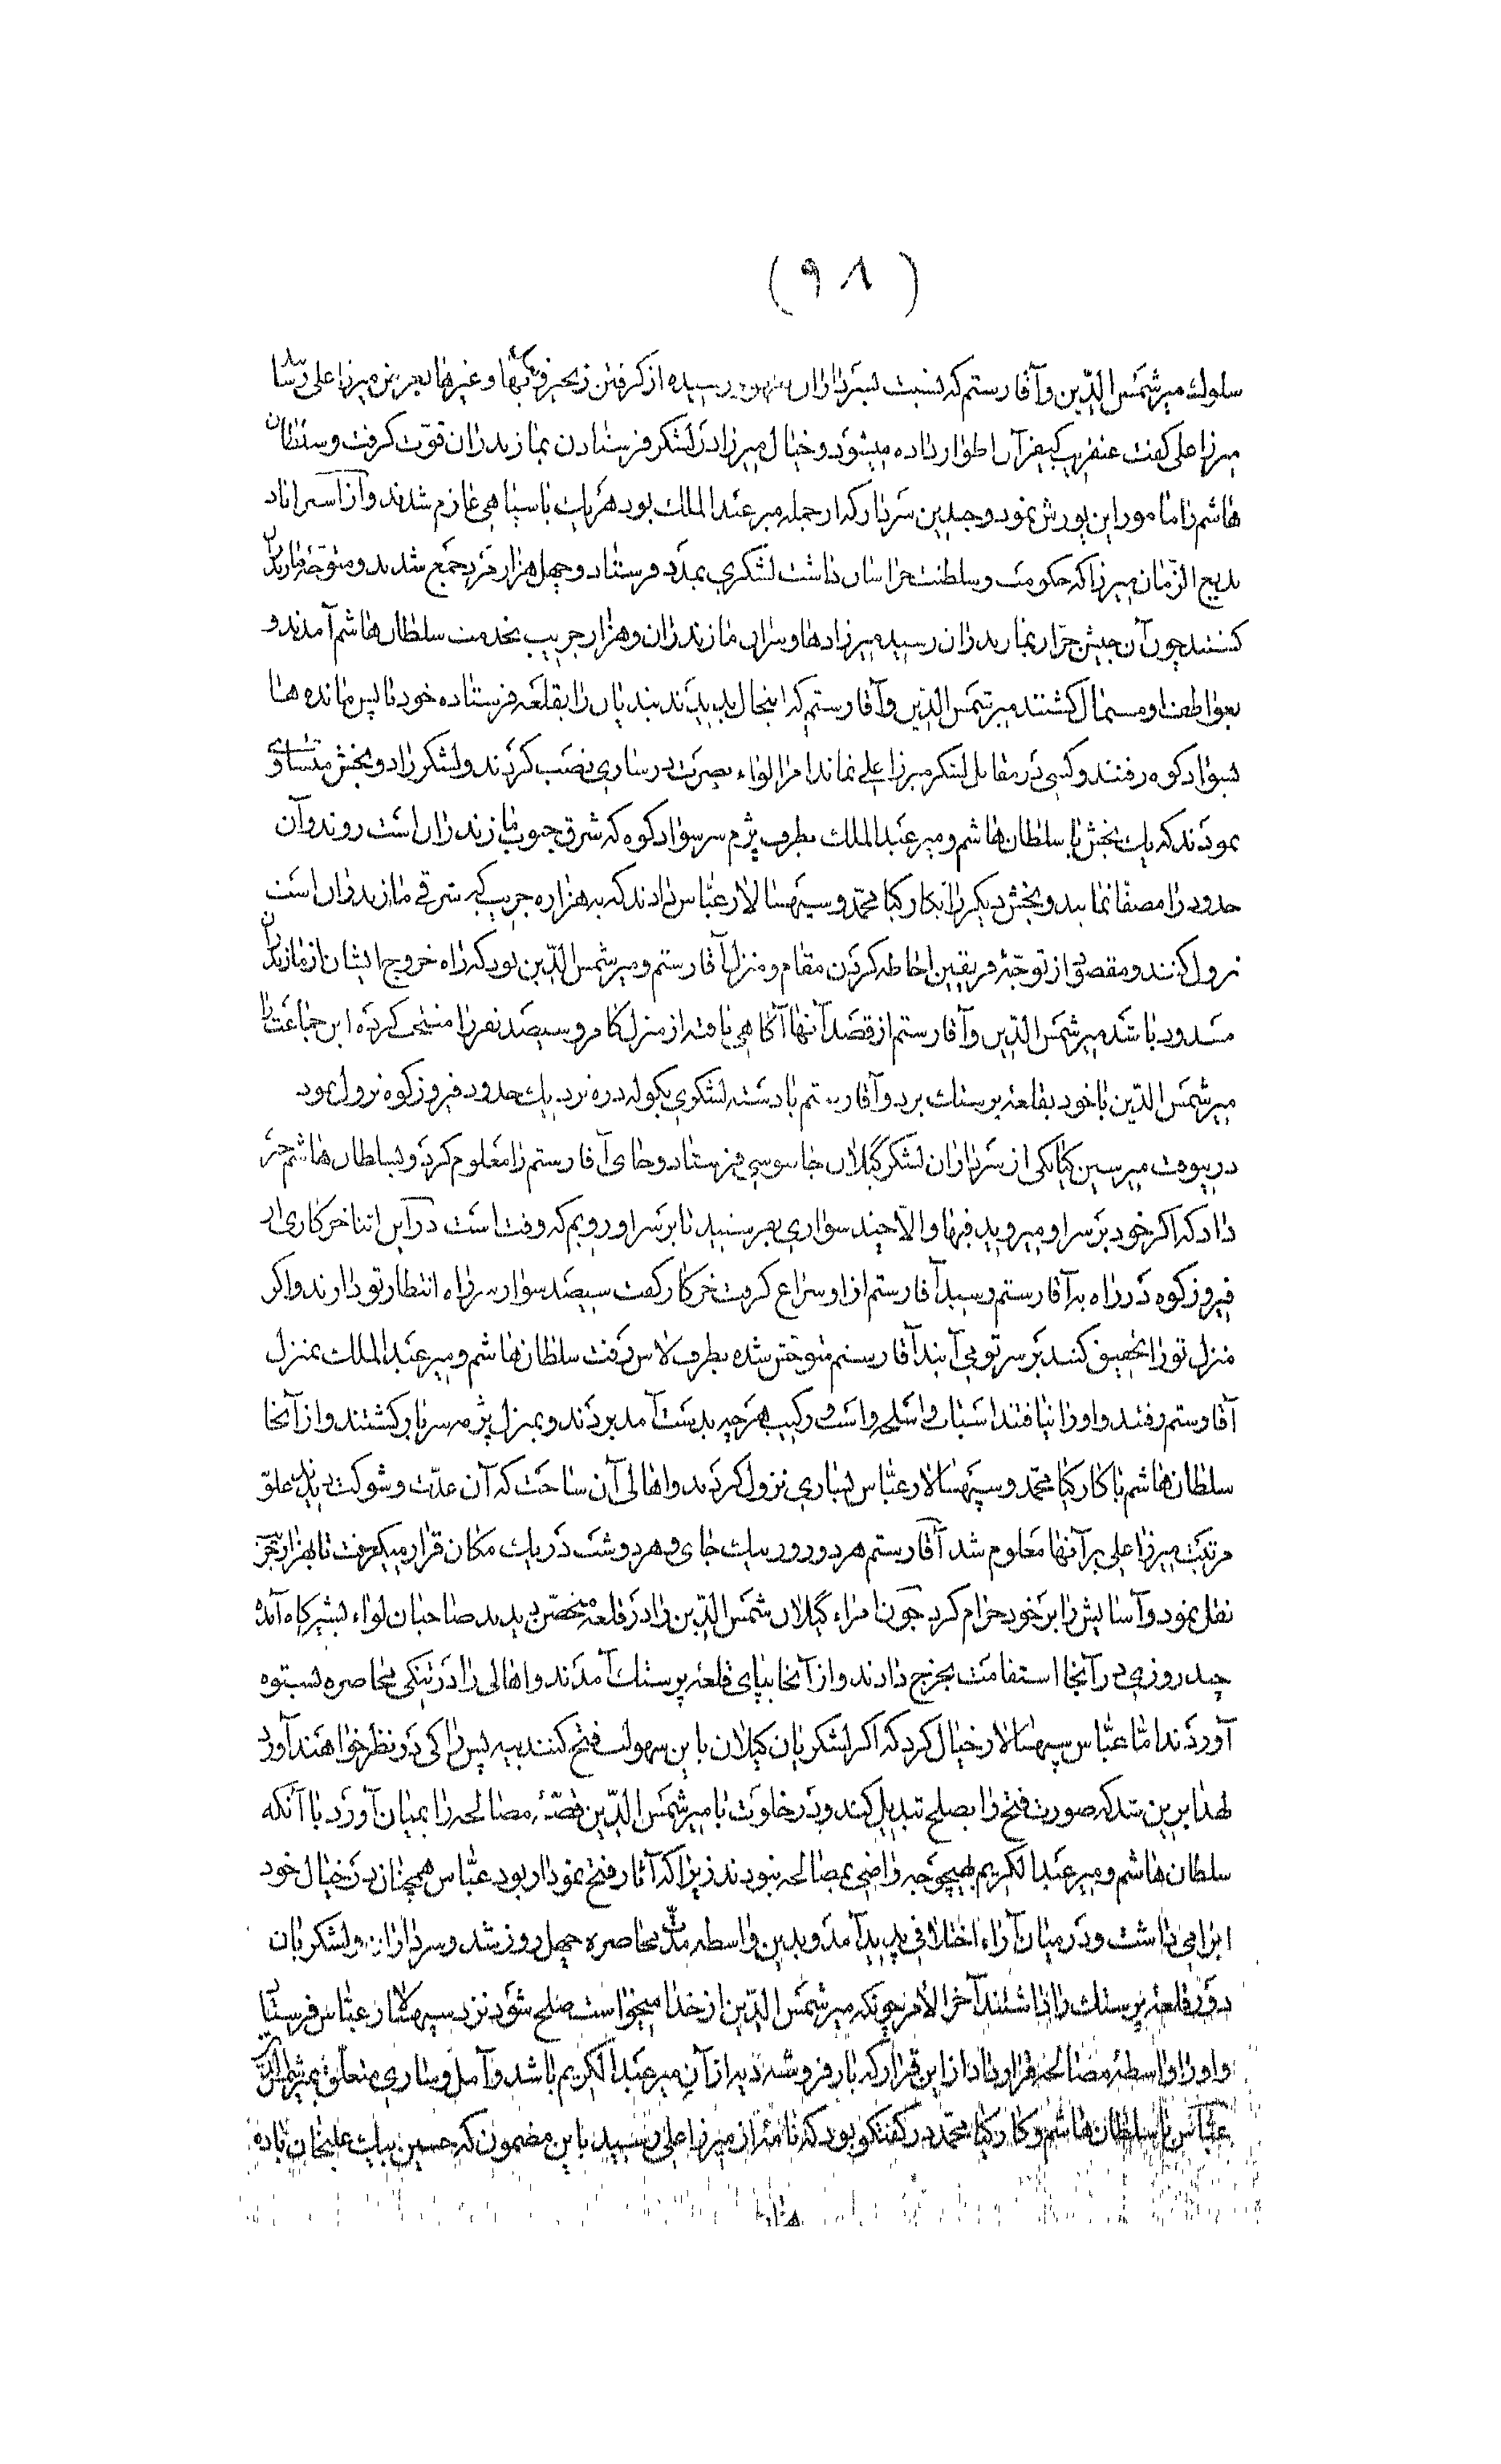 (۹۸)
سلوك میر شمس الدّین و آقا رستم که نسبت بسرداران رسیده از گرفتن زنجیر و غیرها بعرض میرزا علی رسید
میرزا علی گفت عنقریب کیفر آن اطوار داده میشود و خیال میرزا در لشکر فرستادن بمازندران قوّت گرفت و سلطان
هاشم را مامور این یورش نمود و چندین سردار که از جمله میر عبد الملك بود هر یك با سپاهی عازم شدند و از استراباد
بدیع الزّمان میرزا که حکومت و سلطنت خراسان داشت لشکری بمدد فرستاد و چهل هزار مرد جمع شدند و متوجّه مازندران
گشتند چون آن جیش جرّار بمازندران رسید میرزادها و سران مازندران و هزار جریب بخدمت سلطان هاشم آمدند و
بعواطف او مستمال گشتند میر شمس الدّین و آقا رستم که اینحال بدیدند بندیان را بقلعه فرستاده خود با پس مانده ها
بسواد کوه رفتند و کسی در مقابل لشکر میرزا علی نماند امرا لواء نصرت در ساری نصب کردند و لشکر را دو بخش متساوی
نمودند که یك بخش با سلطان هاشم و میر عبد الملك بطرف پژم سر سواد کوه که شرق جنوب مازندران است روند و آن
حدود را مصفّا نمایند و بخش دیگر را بکارکیا محمّد و سپهسالار عبّاس دادند که به هزاره جریب که شرقی مازندران است
نزول کنند و مقصود از توجّه فریقین احاطه کردن مقام و منزل آقا رستم و میر شمس الدّین بود که راه خروج ایشان از مازندران
مسدود باشد میر شمس الدّین و آقا رستم از قصد آنها آگاهی یافته از منزل کامرو سیصد نفر را منتخب کرده این جماعت را
میر شمس الدّین با خود بقلعه پرستك برد و آقا رستم با دسته لشکری بکوله دره نزدیك حدود فیروزکوه نزول نمود
در پیوفت میر سین کیا یکی از سرداران لشکر گیلان جاسوسی فرستاد و جای آقا رستم را معلوم کرد و بسلطان هاشم خبر
داد که اگر خود بر سر او میروید فبها و الّا چند سواری بفرستید تا بر سر او رویم که وقت است در این اثنا خرکاری از
فیروزکوه در راه به آقا رستم رسید آقا رستم از او سراغ گرفت خرکار گفت سیصد سوار سر راه انتظار تو دارند و اگر
منزل تو را تحقیق کنند بر سر تو می آیند آقا رستم متوحّش شده بطرف لاس رفت سلطان هاشم و میر عبد الملك بمنزل
آقا رستم رفتند و او را نیافتند اسباب و اسلحه و اسب و رکیب هر چه بدست آمد بردند و بمنزل پژم سر باز گشتند و از آنجا
سلطان هاشم با کارکیا محمّد و سپهسالار عبّاس بساری نزول کردند و اهالی آن ساحت که آن عدّت و شوکت بدیدند علوّ
مرتبت میرزا علی بر آنها معلوم شد آقا رستم هر دو روز بیك جای و هر دو شب در یك مکان قرار میگرفت تا بهزار جریب
نقل نمود و آسایش را بر خود حرام کرد چون امراء گیلان شمس الدّین را در قلعه متحصّن دیدند صاحبان لواء بشیرگاه آمده
چند روزی در آنجا استقامت بخرج دادند و از آنجا بپای قلعه پرستك آمدند و اهالی را در تنگی محاصره بستوه
آوردند امّا عبّاس سپهسالار خیال کرد که اگر لشکریان گیلان باین سهولت فتح کنند بیه پس را کی در نظر خواهند آورد
لهذا برین شد که صورت فتح را بصلح تبدیل کند و در خلوت با میر شمس الدّین قصّۀ مصالحه را بمیان آورد با آنکه
سلطان هاشم و میر عبد الکریم بهیچوجه راضی بمصالحه نبودند زیرا که آثار فتح نمودار بود عبّاس همچنان در خیال خود
ابرامی داشت و در میان آراء اختلافی پدید آمد و بدین واسطه مدّت محاصره چهل روز شد و سرداران و لشکریان
دور قلعه پرستك را داشتند آخر الأمر چونکه میر شمس الدّین از خدا میخواست صلح شود نزد سپهسالار عبّاس فرستاد
و او را واسطۀ مصالحه قرار داد از این قرار که بارفروشه دیه از آن میر عبد الکریم باشد و آمل و ساری متعلّق بمیر شمس الدّین
عبّاس با سلطان هاشم و کارکیا محمّد در گفتگو بود که نامۀ از میرزا علی رسید باین مضمون که حسین بیك علیخان باده
هزار